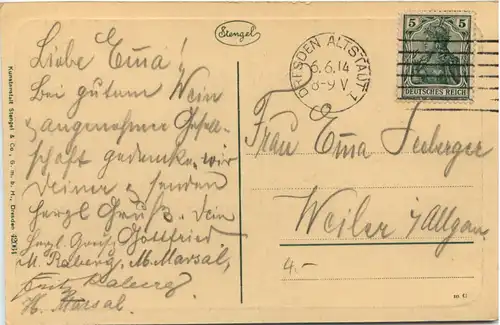 Liebe Ema!
Bei gutem Wein
& angenehmer Gesell-
schaft gedenken wir
Deiner & senden
herzl Gruß. Dein
Gottfried
Herzl. Gruß
M. Raberg, M. Marsal,
M. Marsal.
Stengel
DRESDEN ALTSTADT 1
6.6.14
8-9 V.
5 5
DEUTSCHES REICH
Frau Ema Seeberger
Weiler i/Allgäu
4.-
m G
Kunstanstalt Stengel & Co., G. m. b. H., Dresden